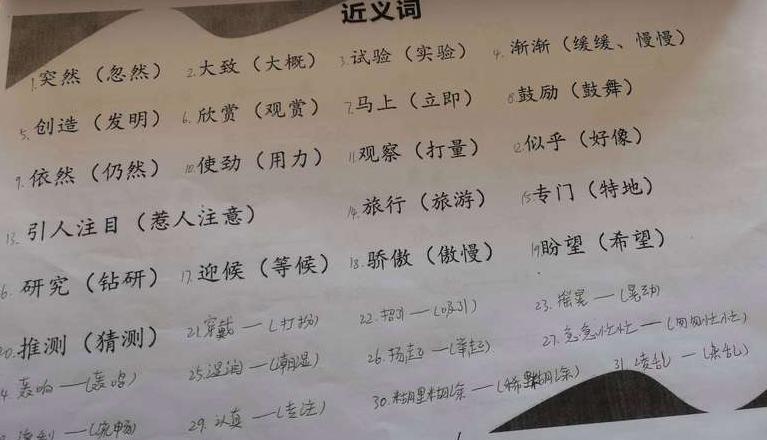 近义词
1.突然（忽然） 2.大致（大概） 3.试验（实验） 4.渐渐（缓缓、慢慢）
5.创造（发明） 6.欣赏（观赏） 7.马上（立即） 8.鼓励（鼓舞）
9.依然（仍然） 10.使劲（用力） 11.观察（打量） 12.似乎（好像）
13.引人注目（惹人注意） 14.旅行（旅游） 15.专门（特地）
6.研究（钻研） 17.迎候（等候） 18.骄傲（傲慢） 19.盼望（希望）
20.推测（猜测） 21.穿戴—（打扮） 22.招引—（吸引） 23.摇晃—（晃动）
4.轰响—（轰鸣） 25.湿润—（潮湿） 26.扬起—（举起） 27.急急忙忙—（匆匆忙忙）
29.认真—（专注） 30.糊里糊涂—（稀里糊涂） 31.凌乱—（杂乱）